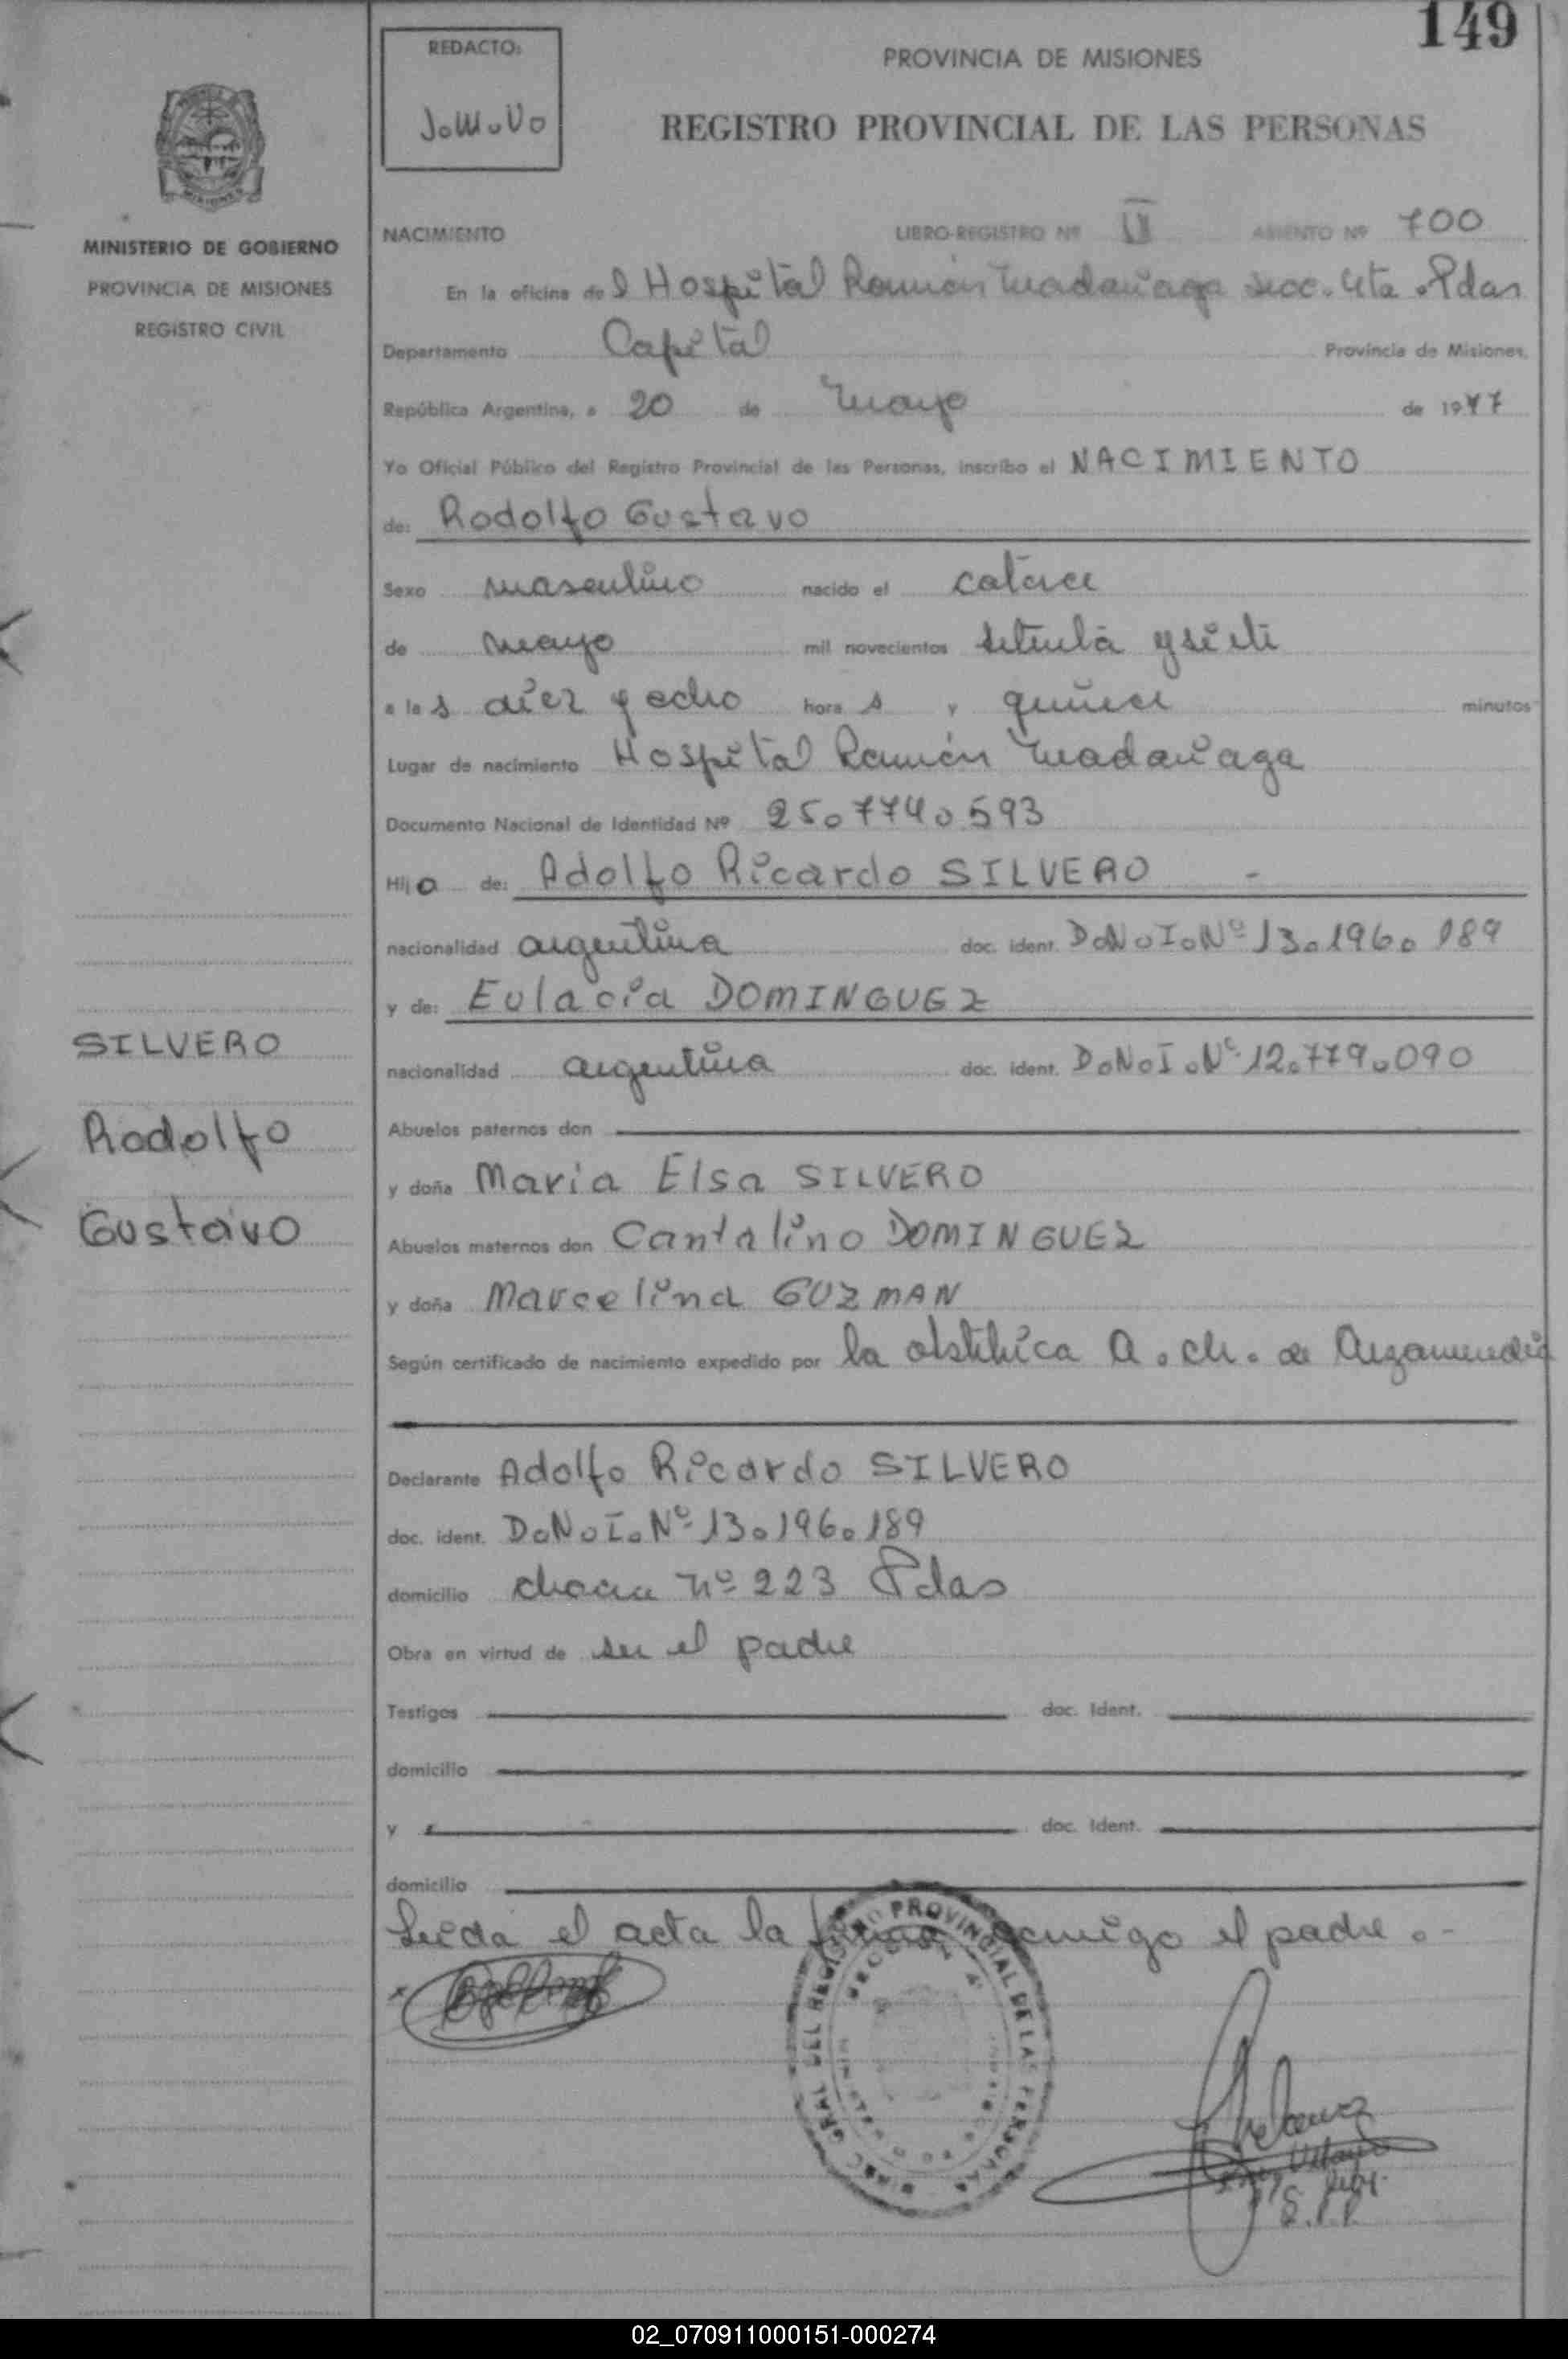 149
REDACTO:
J.M.V.
PROVINCIA DE MISIONES
REGISTRO PROVINCIAL DE LAS PERSONAS
MISIONES
MINISTERIO DE GOBIERNO
PROVINCIA DE MISIONES
REGISTRO CIVIL
NACIMIENTO LIBRO-REGISTRO Nº II ASIENTO Nº 700
En la oficina del Hospital Ramón Madariaga secc. 4ta. Pdas
Departamento Capital Provincia de Misiones,
República Argentina, a 20 de mayo de 1977
Yo Oficial Público del Registro Provincial de las Personas, inscribo el NACIMIENTO
de: Rodolfo Gustavo
Sexo masculino nacido el catorce
de mayo mil novecientos setenta y siete
a las diez y ocho horas y quince minutos
Lugar de nacimiento Hospital Ramón Madariaga
Documento Nacional de Identidad Nº 25.774.593
Hijo de: Adolfo Ricardo SILVERO -
nacionalidad argentina doc. ident. D.N.I.Nº 13.196.189
y de: Eulacia DOMINGUEZ
nacionalidad argentina doc. ident. D.N.I.Nº 12.779.090
Abuelos paternos don
y doña Maria Elsa SILVERO
Abuelos maternos don Cantalino DOMINGUEZ
y doña Marcelina GUZMAN
Según certificado de nacimiento expedido por la obstétrica A. ch. de Arzamendia
Declarante Adolfo Ricardo SILVERO
doc. ident. D.N.I.Nº 13.196.189
domicilio chacra nº 223 Pdas
Obra en virtud de ser el padre
Testigos doc. Ident.
domicilio
y doc. Ident.
domicilio
Leída el acta la firma conmigo el padre.-
SILVERO
Rodolfo
Gustavo
DIREC. GRAL. DEL REGISTRO PROVINCIAL DE LAS PERSONAS
02_070911000151-000274